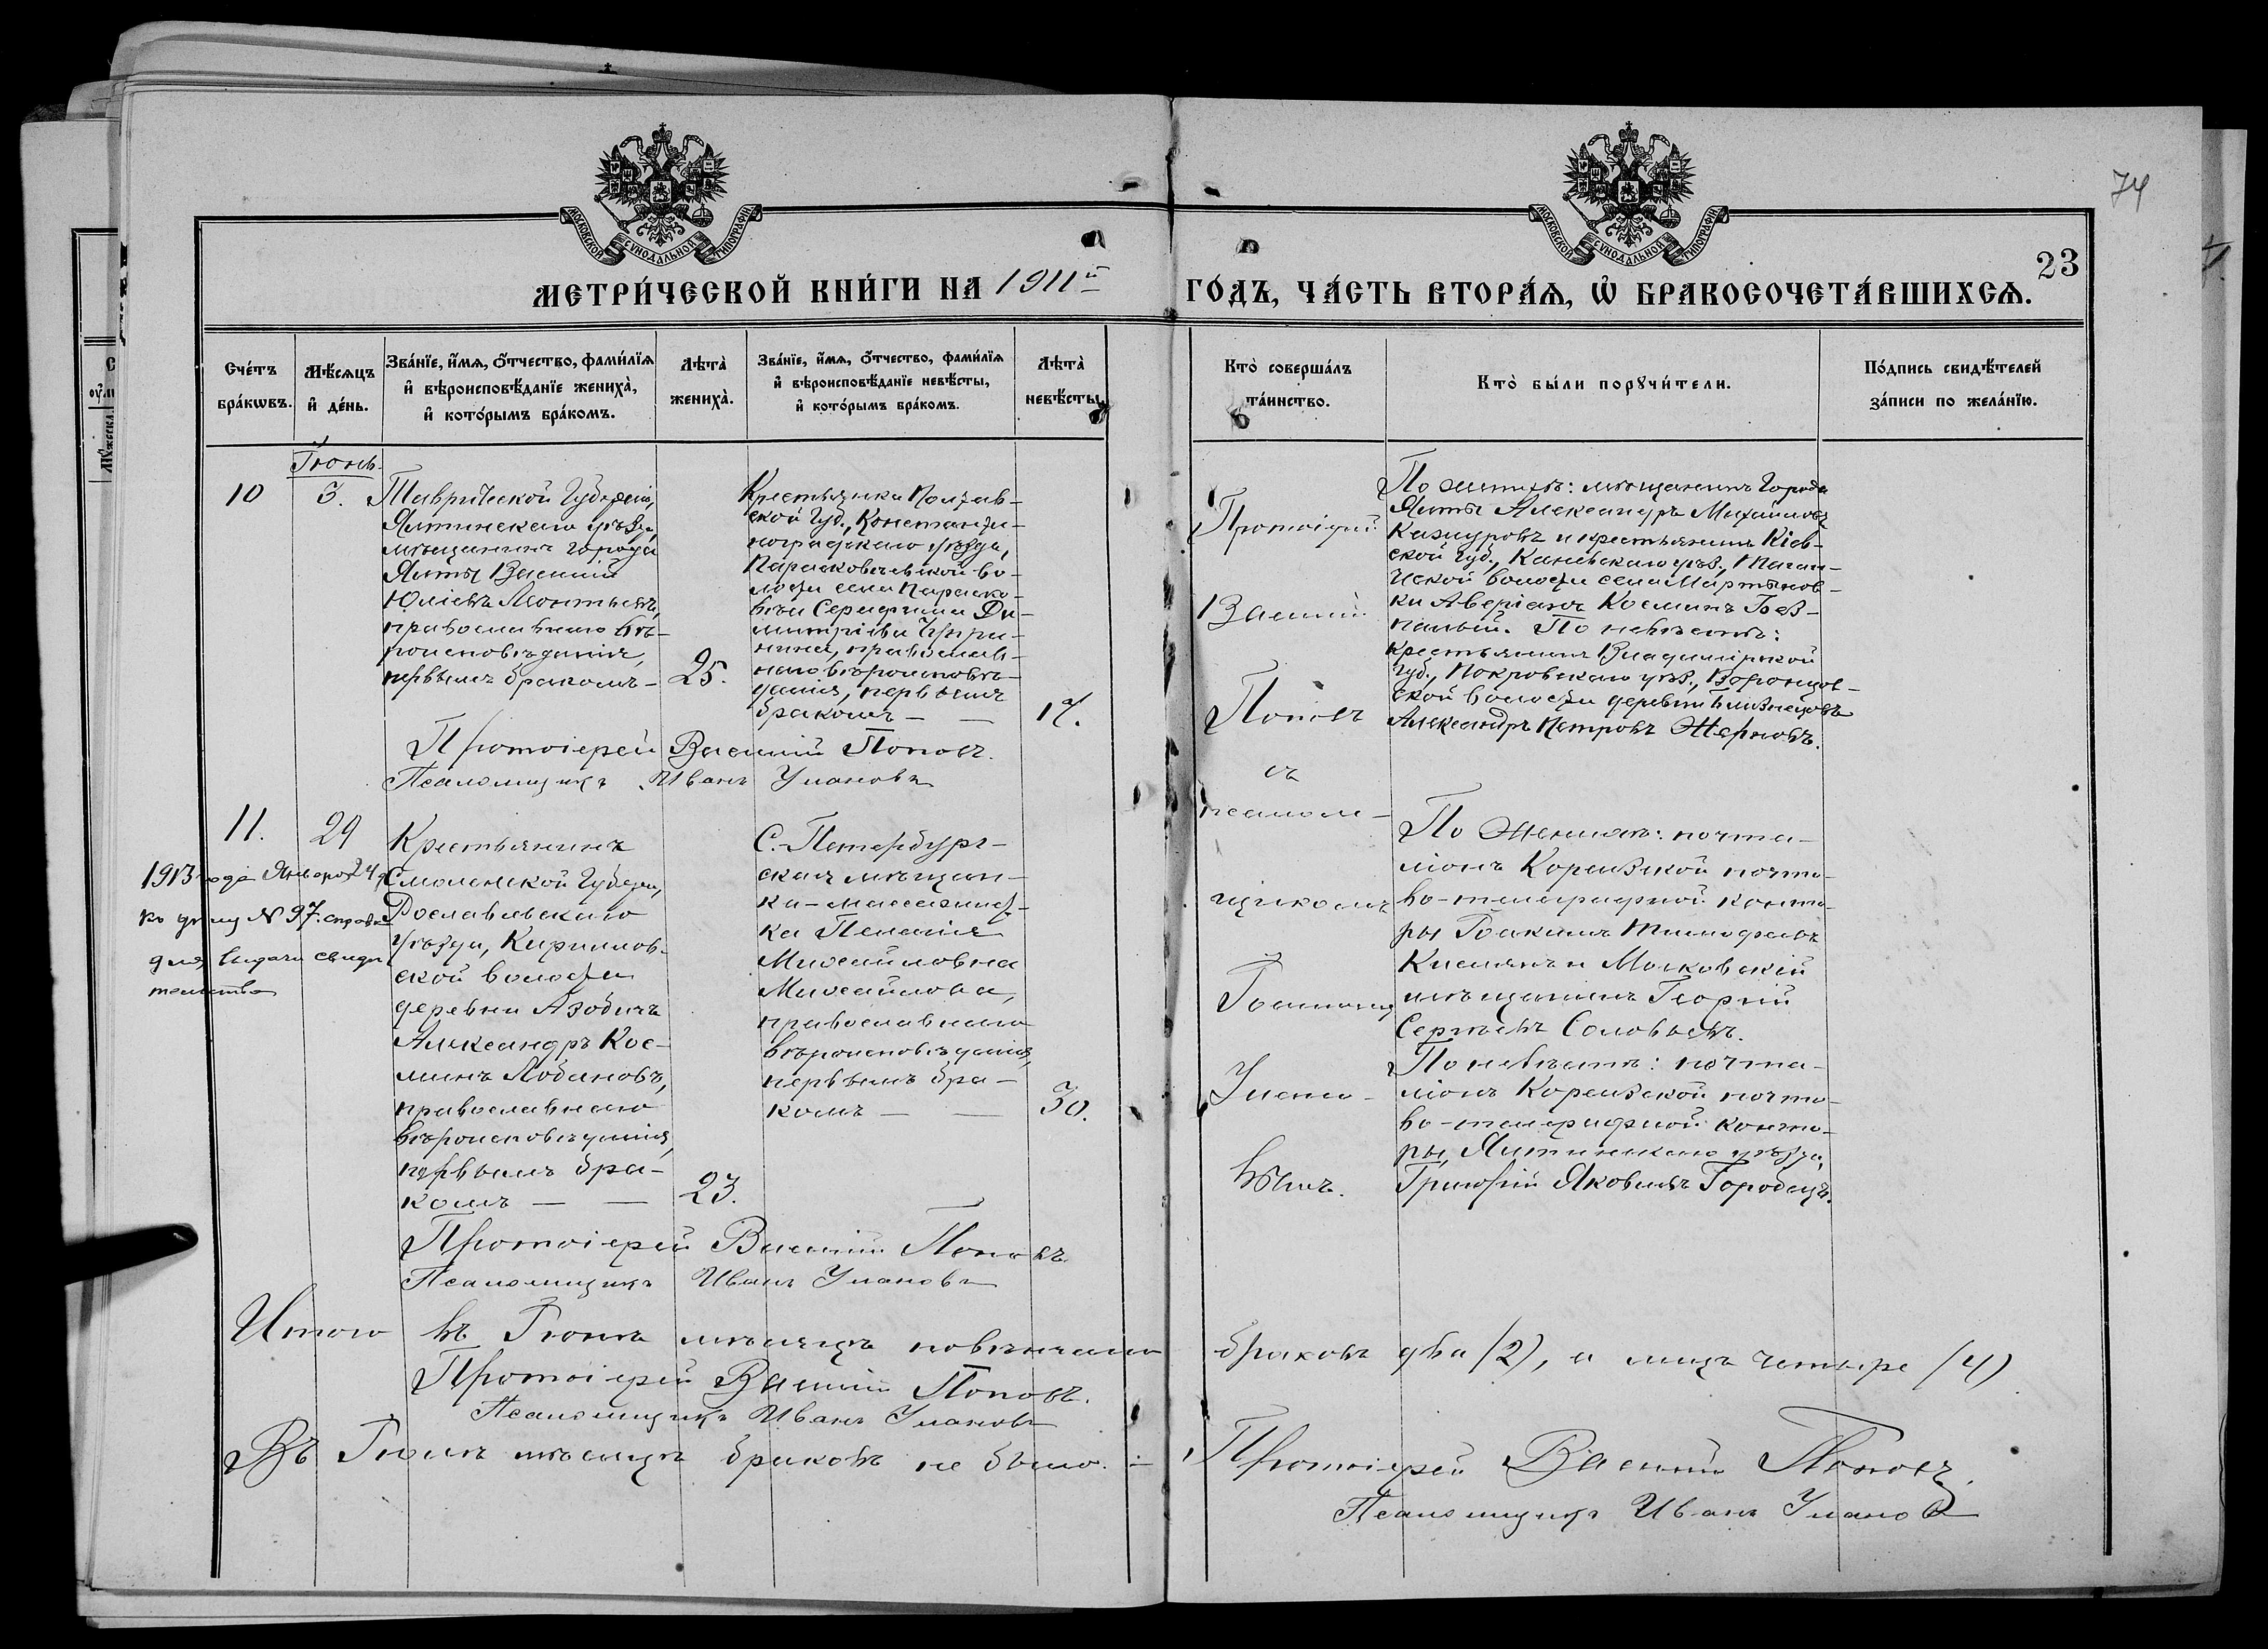 74
23
МОСКОВСКОЙ СѴНОДАЛЬНОЙ ТИПОГРАФІИ
МОСКОВСКОЙ СѴНОДАЛЬНОЙ ТИПОГРАФІИ
МЕТРИ́ЧЕСКОЙ КНИ́ГИ НА 1911й
ГО́ДЪ, ЧА́СТЬ ВТОРА́Ѧ, Ѽ БРАКОСОЧЕТА́ВШИХСѦ.
Сче́тъ
бра́кωвъ.
Мѣ́сѧцъ
и҆ де́нь.
Зва́нїе, и҆́мѧ, ѻ҆́тчество, фами́лїѧ
и҆ вѣроисповѣ́данїе жениха̀,
и҆ кото́рымъ бра́комъ.
Лѣта̀
жениха̀.
Зва́нїе, и҆́мѧ, ѻ҆́тчество, фами́лїѧ
и҆ вѣроисповѣ́данїе невѣ́сты,
и҆ кото́рымъ бра́комъ.
Лѣта̀
невѣ́сты.
Кто̀ соверша́лъ
та́инство.
Кто̀ бы́ли порꙋчи́тели.
По́дпись свидѣ́телей
за́писи по жела́нїю.
Іюнь.
10
3.
Таврической Губерніи,
Ялтинскаго уѣзда,
мѣщанинъ города
Ялты Василій
Юліевъ Леонтьевъ,
православнаго вѣ-
роисповѣданія,
первымъ бракомъ –
25.
Крестьянка Полтав-
ской Губ., Константи-
ноградскаго уѣзда,
Парасковеевской во-
лости села Параско-
вѣи Серафима Ди-
митріева
православ-
наго вѣроисповѣ-
данія, первымъ
бракомъ – –
17.
Протоіерей
Василій
Поповъ
съ
псалом-
щикомъ
Іоанномъ
Улано-
вымъ.
По женихѣ: мѣщанинъ города
Ялты Александръ Михайловъ
и крестьянинъ Кіев-
ской Губ., Каневскаго уѣз., Таган-
чской волости села Мартынов-
ки Аверіанъ Косминъ Без-
палый. По невѣстѣ:
крестьянинъ Владимірской
Губ., Покровскаго уѣз., Воронцов-
ской волости деревни
Александръ Петровъ Жерновъ.
Протоіерей Василій Поповъ.
Псаломщикъ Иванъ Улановъ
11.
29
1913 года Января 24 д.
къ дѣлу № 97. справка
для выдачи свидѣ
тельства
Крестьянинъ
Смоленской Губерніи,
Рославльскаго
уѣзда, Кирилов-
ской волости
деревни Азобичъ
Александръ Кос-
минъ Лобановъ,
православнаго
вѣроисповѣданія,
первымъ бра-
комъ – –
23.
С.-Петербург-
ская мѣщан-
ка – массажист-
ка Пелагія
Михайловна
Михайлова,
православнаго
вѣроисповѣданія,
первымъ бра-
комъ – –
30.
По женихѣ: почта-
ліонъ Кореизской почто-
во-телеграфной конто-
ры Іоакимъ Тимофеевъ
и Московскій
мѣщанинъ Георгій
Сергѣевъ Соловьевъ.
По невѣстѣ: почта-
ліонъ Кореизской почто-
во-телеграфной конто-
ры, Ялтинскаго уѣзда,
Григорій Яковлевъ Городецъ.
Протоіерей Василій Поповъ.
Псаломщикъ Иванъ Улановъ
Итого въ Іюнѣ мѣсяцѣ повѣнчано браковъ два (2), а лицъ четыре (4)
Протоіерей Василій Поповъ.
Псаломщикъ Иванъ Улановъ
Въ Іюлѣ мѣсяцѣ браковъ не было. –
Протоіерей Василій Поповъ.
Псаломщикъ Иванъ Улановъ